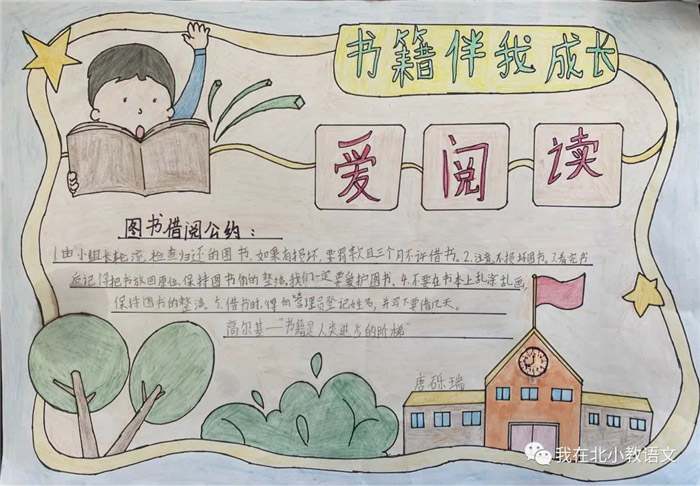 书籍伴我成长
爱阅读
图书借阅公约：
1.由小组长轮流检查归还的图书，如果有损坏，要罚款且三个月不许借书。2.注意不损坏图书。3.看完书
后记得把书放回原位，保持图书角的整洁，我们一定要爱护图书。4.不要在书本上乱涂乱画，
保持图书的整洁。5.借书时，得向管理员登记姓名，并写下要借几天。
高尔基一"书籍是人类进步的阶梯"
唐砾瑞
我在北小教语文